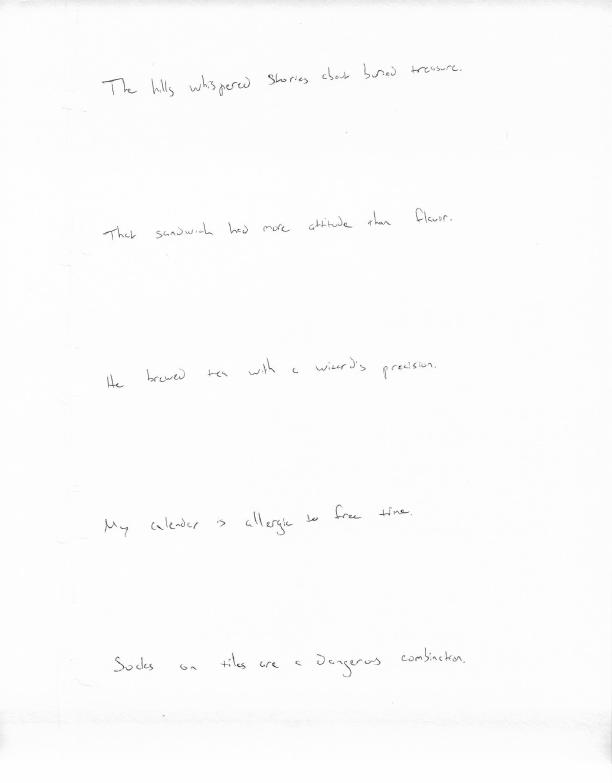 The hills whispered stories about buried treasure.
That sandwich had more attitude than flavor.
He brewed tea with a wizard's precision.
My calendar is allergic to free time.
Socks on tiles are a dangerous combination.